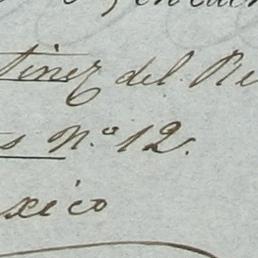 tinez del Ri
s N.º 12.
xico